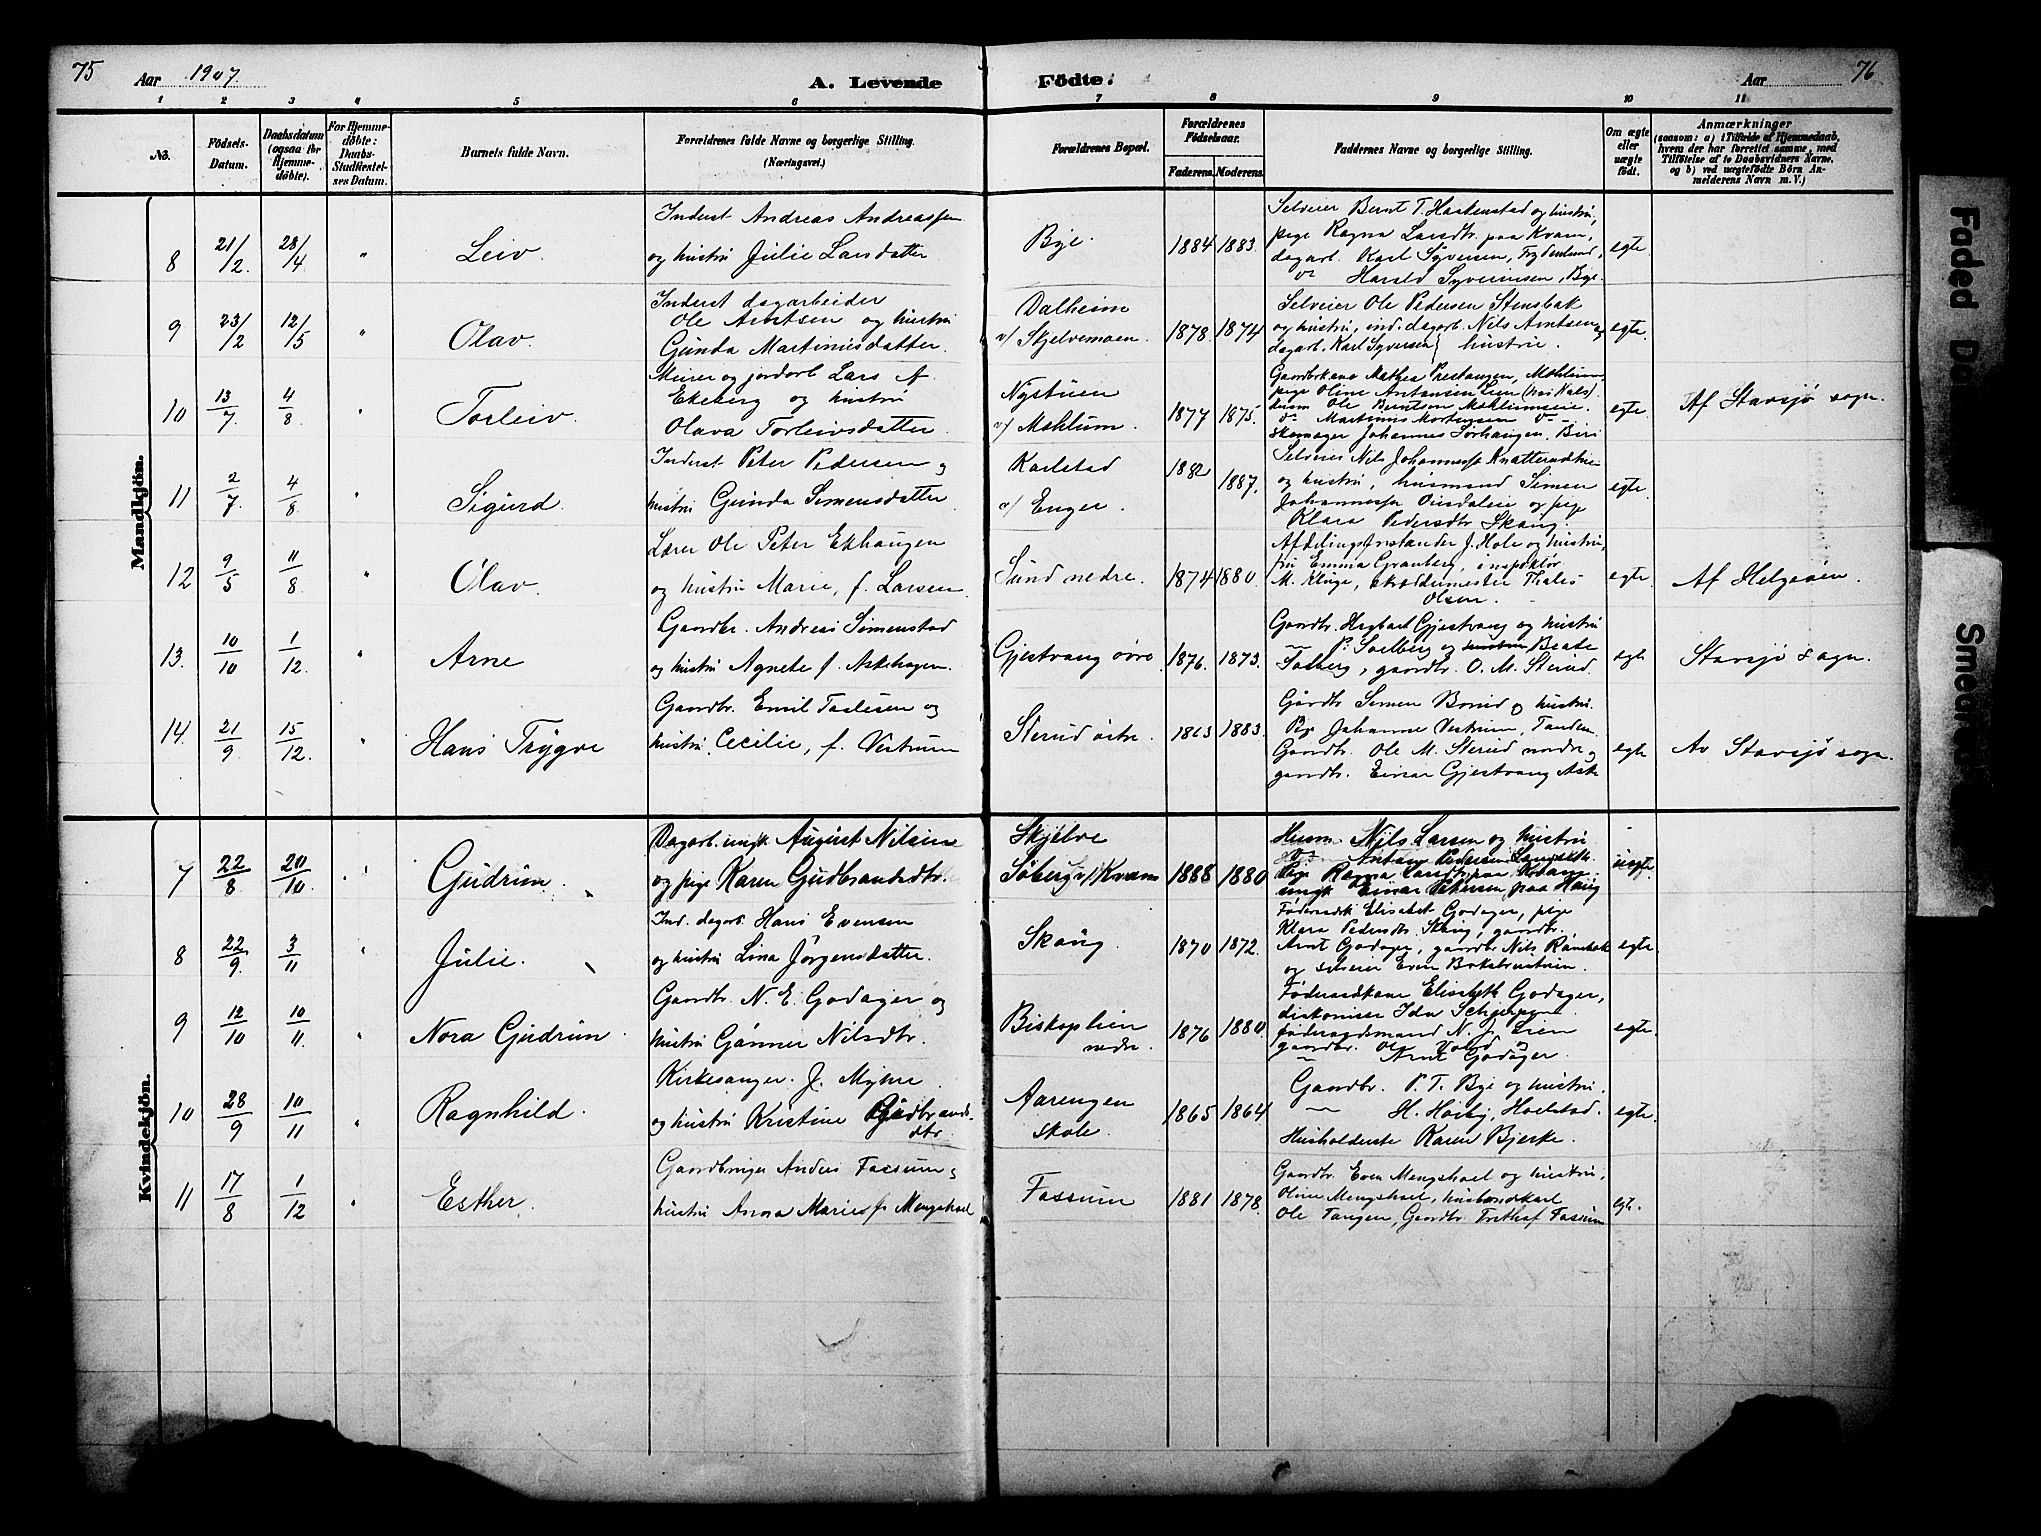 75
Aar 1907.
A. Levende Födte.
Aar
76
1 2 3 4 5 6 7 8 9 10 11
No.
Födsels-Datum.
Daabsdatum (ogsaa for Hjemme-döbte).
For Hjemme-döbte: Daabs-Stadfæstel-ses Datum.
Barnets fulde Navn.
Forældrenes fulde Navne og borgerlige Stilling.
(Næringsvei.)
Forældrenes Bopæl.
Forældrenes Födselsaar.
Faderens. Moderens.
Faddernes Navne og borgerlige Stilling.
Om ægte eller uægte födt.
Anmærkninger
(saasom: a) i Tilfælde af Hjemmedaab, hvem der har forrettet samme, med Tilföielse af to Daabsvidners Navne, og b) ved uægtefödte Börn An-melderens Navn m. V.)
Mandkjön.
8 21/2. 28/4 " Leiv.
Inderst Andreas Andreassen
og hustru Julie Larsdatter
Bye. 1884 1883.
Selveier Bernt T. Haakenstad og hustru,
pige Ragna Larsdtr. paa Kvam,
dagarb. Karl Syversen, Frydenlund,
do Harald Syversen, Bye.
egte.
9 23/2 12/5 " Olav.
Inderst dagarbeider
Ole Arntsen og hustru
Gunda Martiniusdatter.
Dalheim
v/ Skjelvemoen. 1878. 1874
Selveier Ole Pedersen Stensbak
og hustru, ind. dagarb. Nils Arntsen og
dagarb. Karl Syversen hustru.
egte.
10 13/7. 4/8 " Torleiv.
Murer og jordarb. Lars A.
Ekeberg og hustru
Olava Torleivsdatter.
Nystuen
v/ Mæhlum. 1877 1875.
Gaardbrkone Mathea Prestangen, Mæhlum
pige Oline Antonsen Lien
husm Ole Berntsen
do Martinius Mortensen do
skomager Johannes Sørhaugen, Biri
egte. Af Stavsjø sogn.
11 2/7. 4/8 " Sigurd.
Inderst Peter Pedersen og
hustru Gunda Simensdatter
Karlstad
v/ Enger. 1882 1887.
Selveier Nils Johannessen
og hustru, husmand Simen
Johannessen og pige
Klara Pedersdtr Skaug.
egte.
12 9/5 11/8 " Olav.
Lærer Ole Peter Ekhaugen
og hustru Marie, f. Larsen.
Sund nedre. 1874 1880.
Afdelingsforstander J. Hole og hustru,
fru Emma Granberg, inspektør
M. Kluge, skræddermester Thales
Olsen.
egte. Af Helgøen.
13. 10/10 1/12. " Arne
Gaardbr. Andreas Simenstad
og hustru Agnete f. Askehagen.
Gjestvang øvre 1876. 1873.
Gaardbr. Hagbart Gjestvang og hustru
— P. Solberg og hustru Beate
Solberg, gaardbr. O. M. Sterud.
egte Stavsjø sogn.
14. 21/9 15/12. " Hans Trygve
Gaardbr. Emil Taalesen og
hustru Cecilie, f. Vestrum
Sterud østre. 1863 1883.
Gårdbr Simen Borud og hustru.
Pige Johanne Vestrum, Tanden.
Gaardbr. Ole M. Sterud nedre og
gaardbr. Einar Gjestvang
egte Av Stavsjø sogn.
Kvindekjön.
7 22/8 20/10. " Gudrun.
Dagarb. ungk. August Nilsen
og pige Karen Gudbrandsdtr.
Skjelve
Søberg v/ Kvam 1888 1880
Husm. Nils Larsen og hustru
do Anton Pedersen
Pige Ragna Larsdtr. paa Kvam
ungk Einar Petersen paa Haug
uegte.
8 22/9. 3/11 " Julie.
Ind. dagarb. Hans Evensen
og hustru Lina Jörgensdatter.
Skaug. 1870 1872.
Føderaadsk Elisabet Godager, pige
Klara Pedersdtr. Skaug, gaardbr.
Arnt Godager, gaardbr. Nils
og selveier Even
egte.
9 12/10 10/11. " Nora Gudrun.
Gaardbr. N. E. Godager og
hustru Gunner Nilsdtr.
Biskoplien
nedre. 1876 1880.
Føderaadkone Elisabeth Godager,
diakonisse Ida
føderaadsmand N. J. Lien
gaardbr. Ole og
— Arnt Godager.
egte.
10 28/9 10/11 " Ragnhild.
Kirkesanger. J. Myhre
og hustru Kristine Gudbrands-
dtr.
Aarengen
skole. 1865 1864
Gaardbr. P. T. Bye og hustru.
— H. Høiby, Hoelstad.
Husholderske Karen Bjerke.
egte.
11 17/8 1/12 " Esther.
Gaardbruger Anders Fossum og
hustru Anna Marie f. Mengshoel
Fossum 1881 1878.
Gaardbr Even Mengshoel og hustru,
Oline Mengshoel,
Ole Tangen, Gaardbr. Fossum
egte.
Faded
Smeared